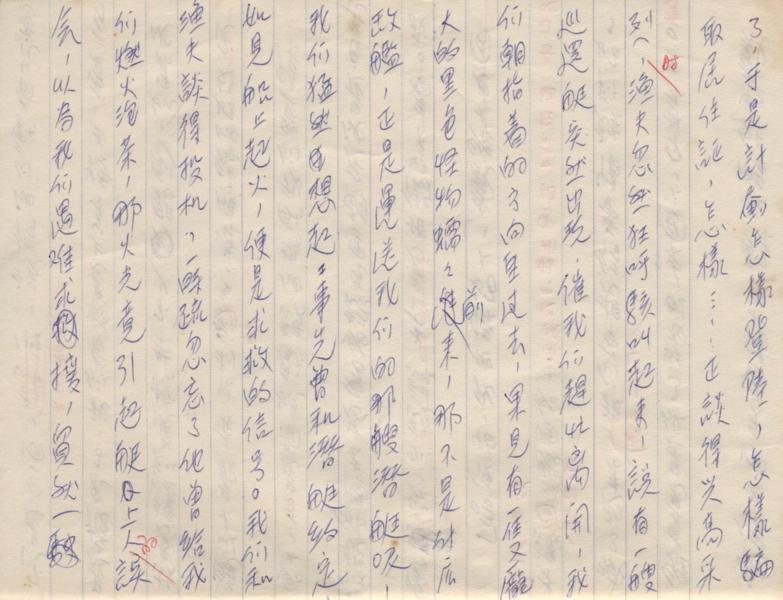 了，于是計劃怎樣登陸，怎樣騙
取居住証，怎樣……正談得兴高采
列，漁夫忽然狂呼駭叫起来，說有一艘
巡邏艇突然出現，催我们趕快离開，我
们朝指着的方向望过去，果見有一隻龐
大的黑色怪物蠕々前来，那不是
敵艦，正是運送我们的那艘潛艇呀，
我们猛然想起：事先曾和潛艇約定，
如見船上起火，便是求救的信号。我们和
漁夫談得投机，一時疏忽忘了他曾給我
们燃火泡茶，那火光竟引起艇上人誤
会，以為我们遇难求援，貿然一